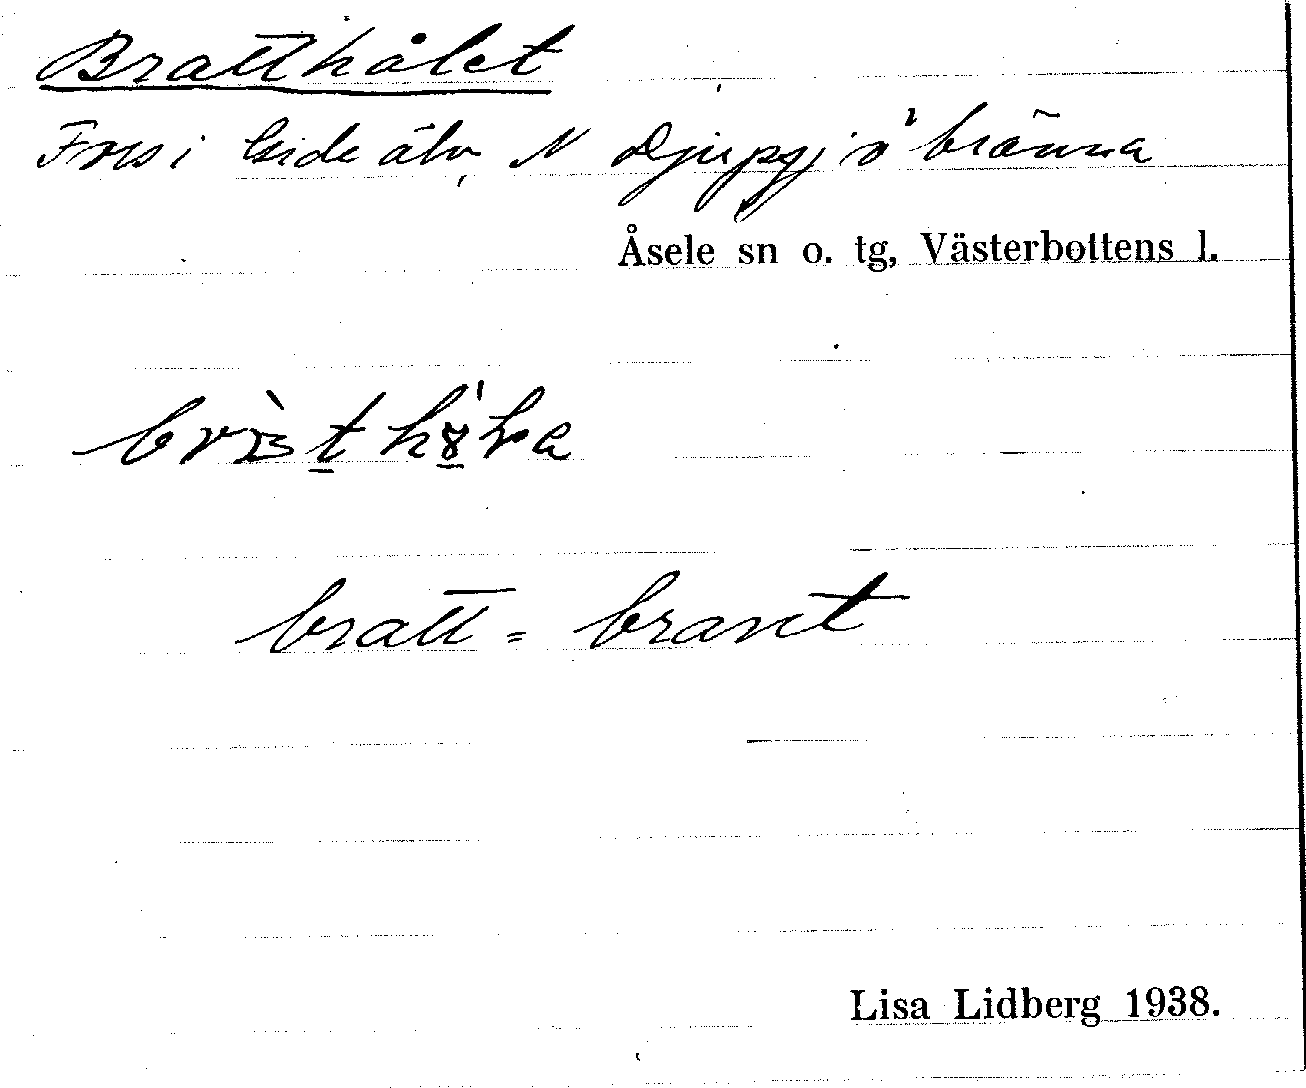 Bratthålet
Fors i Gide älv, N Djupsjöbränna
Åsele sn o. tg, Västerbottens l.
bratt = brant
Lisa Lidberg 1938.